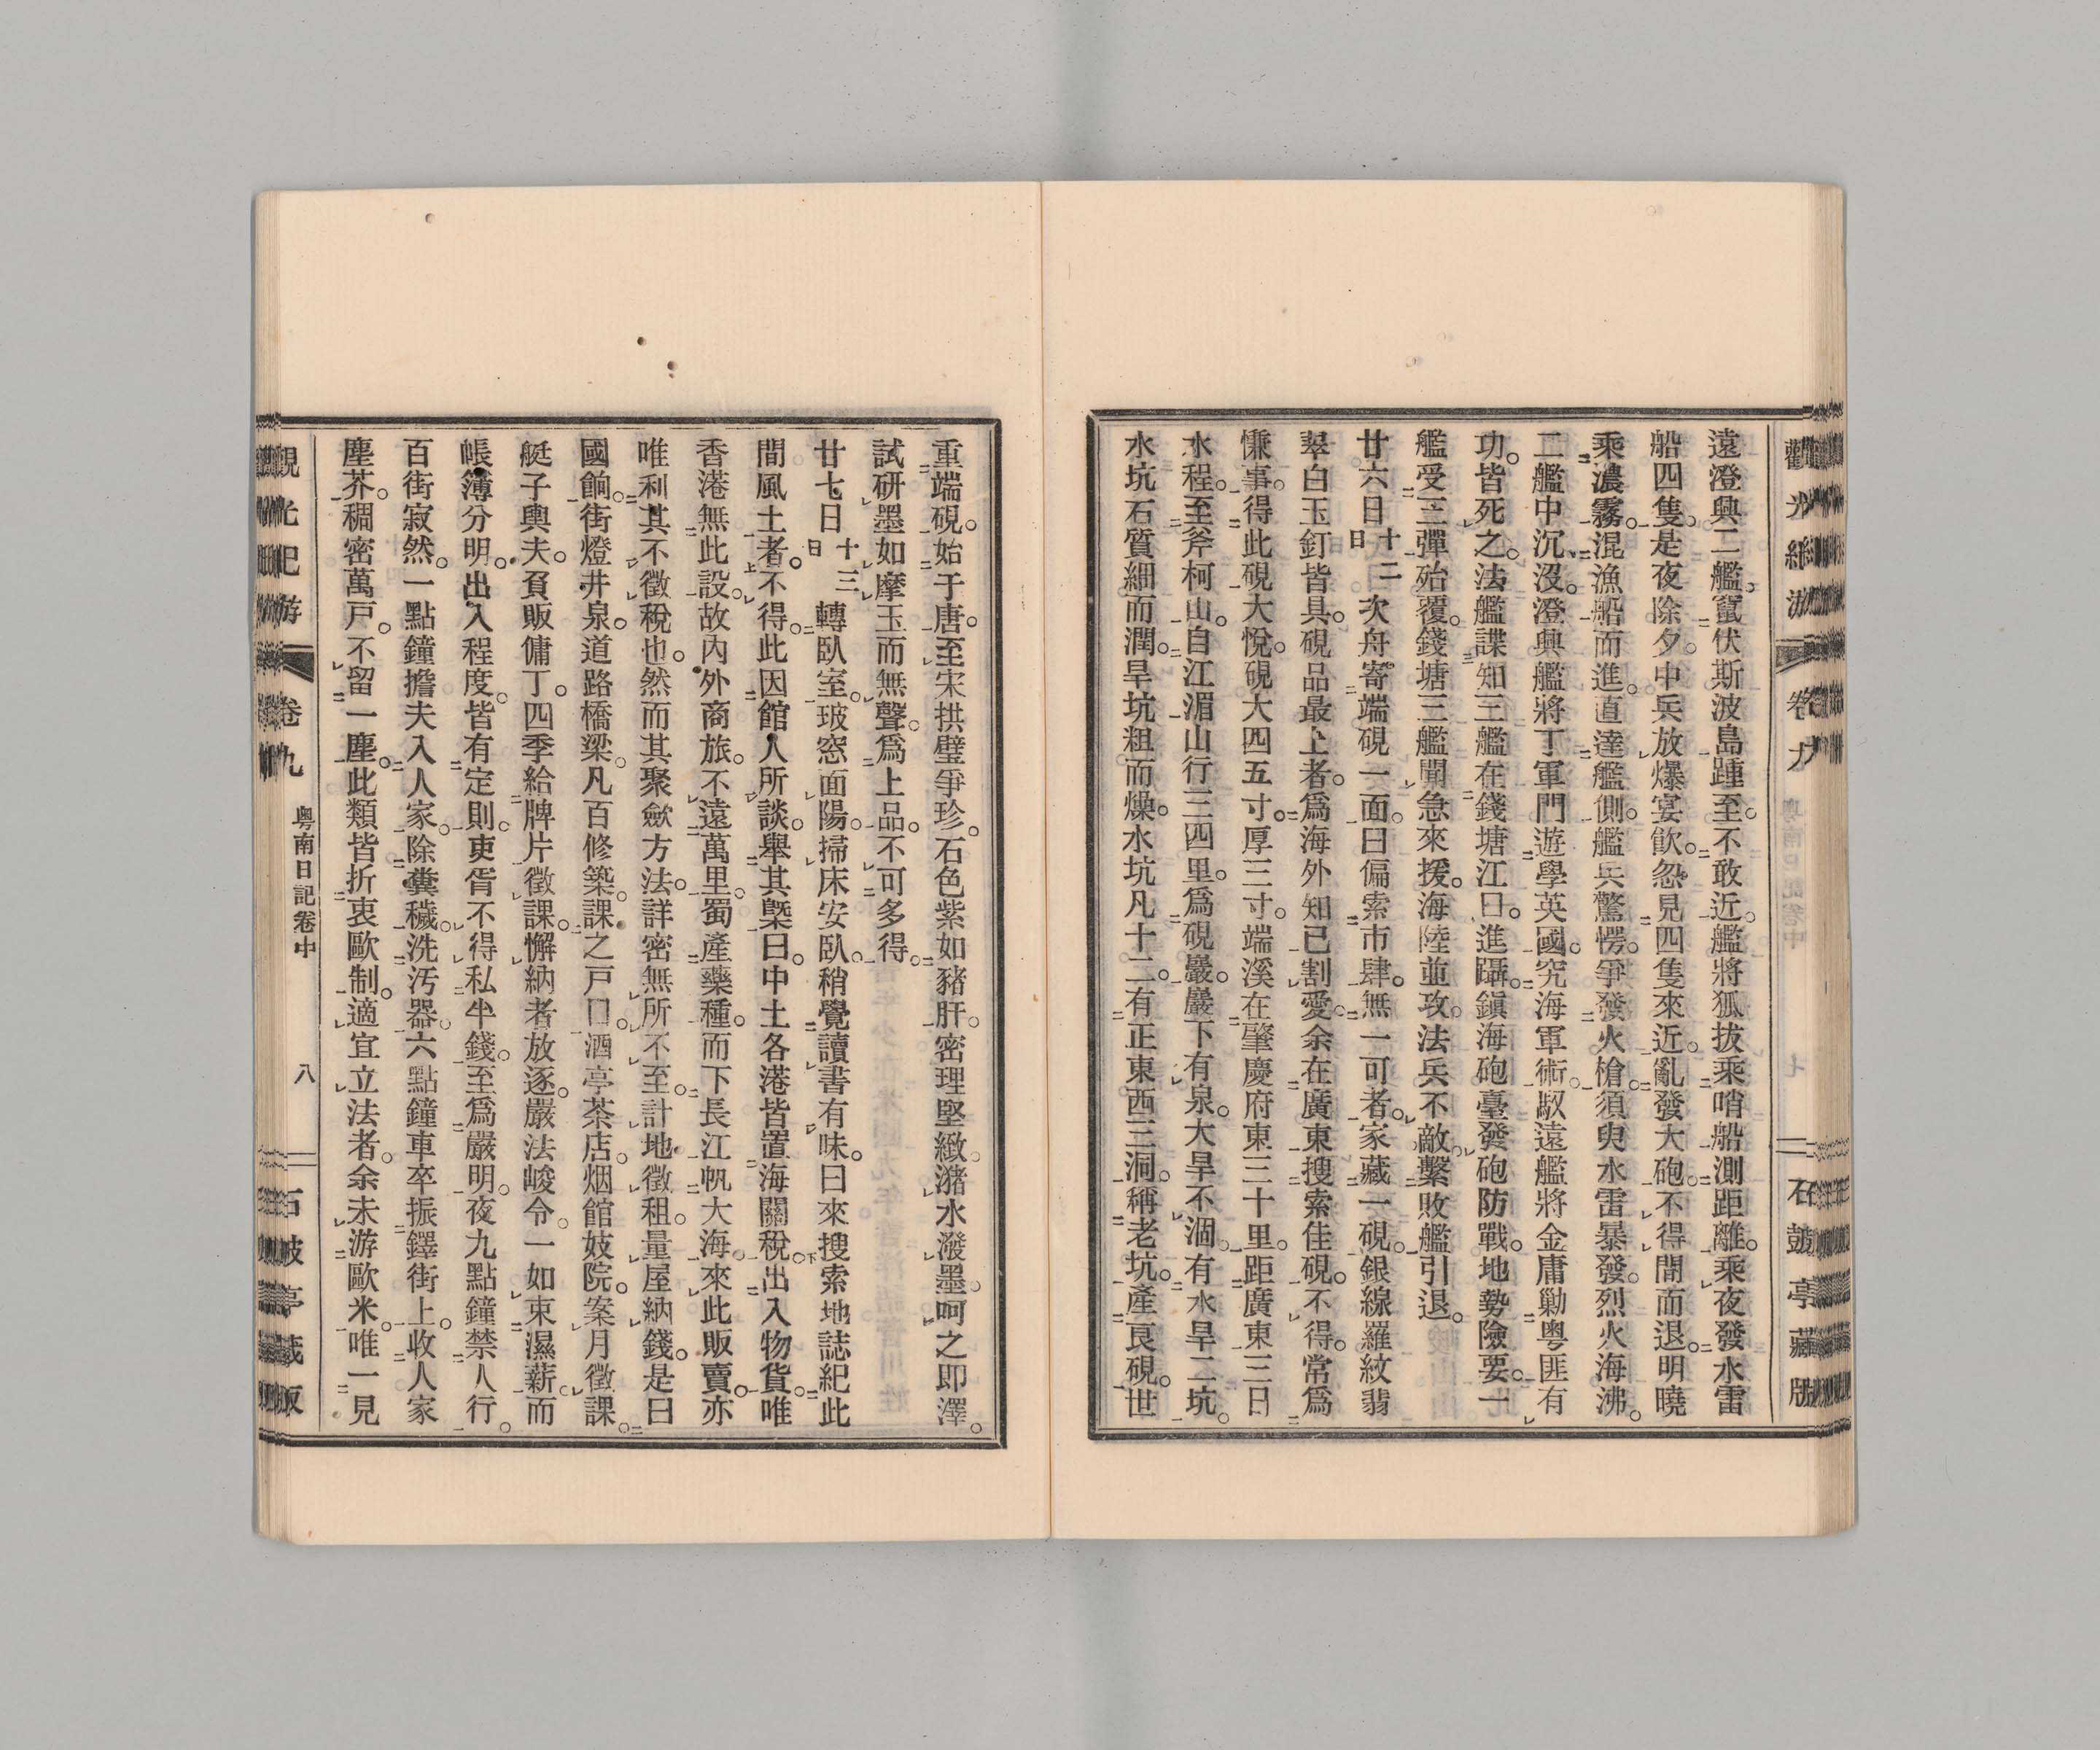 觀光紀游 卷九 石鼓亭藏版
遠澄興二艦竄伏斯波島踵至。不敢近。艦將狐拔乘哨船測距離。乘夜發水雷
船四隻。是夜除夕。中兵放爆宴飮。忽見四隻來近。亂發大砲。不得間而退。明曉
乘濃霧。混漁船而進。直達艦側。艦兵驚愕。爭發火槍。須臾水雷暴發。烈火海沸。
二艦中沉沒。澄興艦將丁軍門遊學英國。究海軍術。馭遠艦將金庸勦粤匪有
功。皆死之。法艦諜知三艦在錢塘江口。進躡。鎭海砲臺發砲防戰。地勢險要。一
艦受三彈殆覆。錢塘三艦聞急來援。海陸並攻。法兵不敵。繫敗艦引退。
廿六日十二日次舟寄端硯一面。曰偏索市肆。無一可者。家藏一硯。銀線羅紋翡
翠白玉釘皆具。硯品最上者。爲海外知已割愛。余在廣東搜索佳硯。不得。常爲
慊事。得此硯大悅。硯大四五寸。厚三寸。端溪在肇慶府東三十里。距廣東三日
水程。至斧柯山。自江湄山行三四里。爲硯巖。巖下有泉。大旱不涸。有水旱二坑。
水坑石質細而潤。旱坑粗而燥。水坑凡十二。有正東西三洞。稱老坑。產良硯。世
重端硯。始于唐。至宋拱璧爭珍。石色紫如豬肝。密理堅緻。潴水潑墨。呵之即澤。
試研墨如摩玉而無聲。爲上品。不可多得。
廿七日十三日轉臥室。玻窓面陽。掃床安臥。稍覺讀書有味。曰來搜索地誌紀此
間風土者。不得。此因館人所談。舉其槩曰。中土各港皆置海關。稅出入物貨。唯
香港無此設。故內外商旅。不遠萬里。蜀產藥種。而下長江帆大海。來此販賣。亦
唯利其不徵稅也。然而其聚斂方法。詳密無所不至。計地徵租。量屋納錢。是曰
國餉。街燈井泉。道路橋梁。凡百修築。課之戶口。酒亭茶店。烟館妓院。案月徵課。
艇子輿夫。負販傭丁。四季給牌片徵課。懈納者放逐。嚴法峻令。一如束濕薪。而
帳簿分明。出入程度。皆有定則。吏胥不得私半錢。至爲嚴明。夜九點鐘禁人行。
百街寂然。一點鐘擔夫入人家。除糞穢。洗汚器。六點鐘車卒振鐸街上。收人家
塵芥。稠密萬戶。不留一塵。此類皆折衷歐制。適宜立法者。余未游歐米。唯一見
觀光紀游 卷九 粤南日記卷中 八 石鼓亭藏版